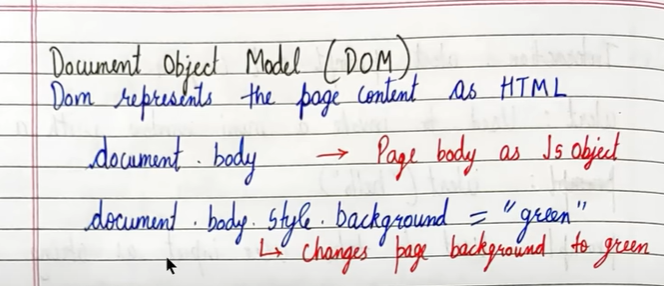 Document Object Model (DOM)
Dom represents the page content as HTML
document . body → Page body as Js Object
document . body . style . background = "green"
↳ changes page background to green